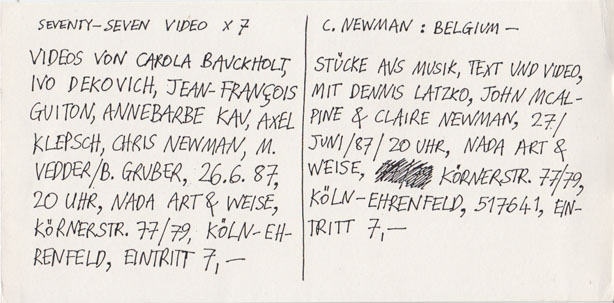 SEVENTY-SEVEN VIDEO X 7
VIDEOS VON CAROLA BAUCKHOLT,
IVO DEKOVICH, JEAN-FRANÇOIS
GUITON, ANNEBARBE KAU, AXEL
KLEPSCH, CHRIS NEWMAN, M.
VEDDER/B. GRUBER, 26.6. 87,
20 UHR, NADA ART & WEISE,
KÖRNERSTR. 77/79, KÖLN-EH-
RENFELD, EINTRITT 7,—
C. NEWMAN : BELGIUM —
STÜCKE AUS MUSIK, TEXT UND VIDEO,
MIT DENNIS LATZKO, JOHN MCAL-
PINE & CLAIRE NEWMAN, 27/
JUNI/87/20 UHR, NADA ART &
WEISE, KÖRNERSTR. 77/79,
KÖLN-EHRENFELD, 517641, EIN-
TRITT 7,—